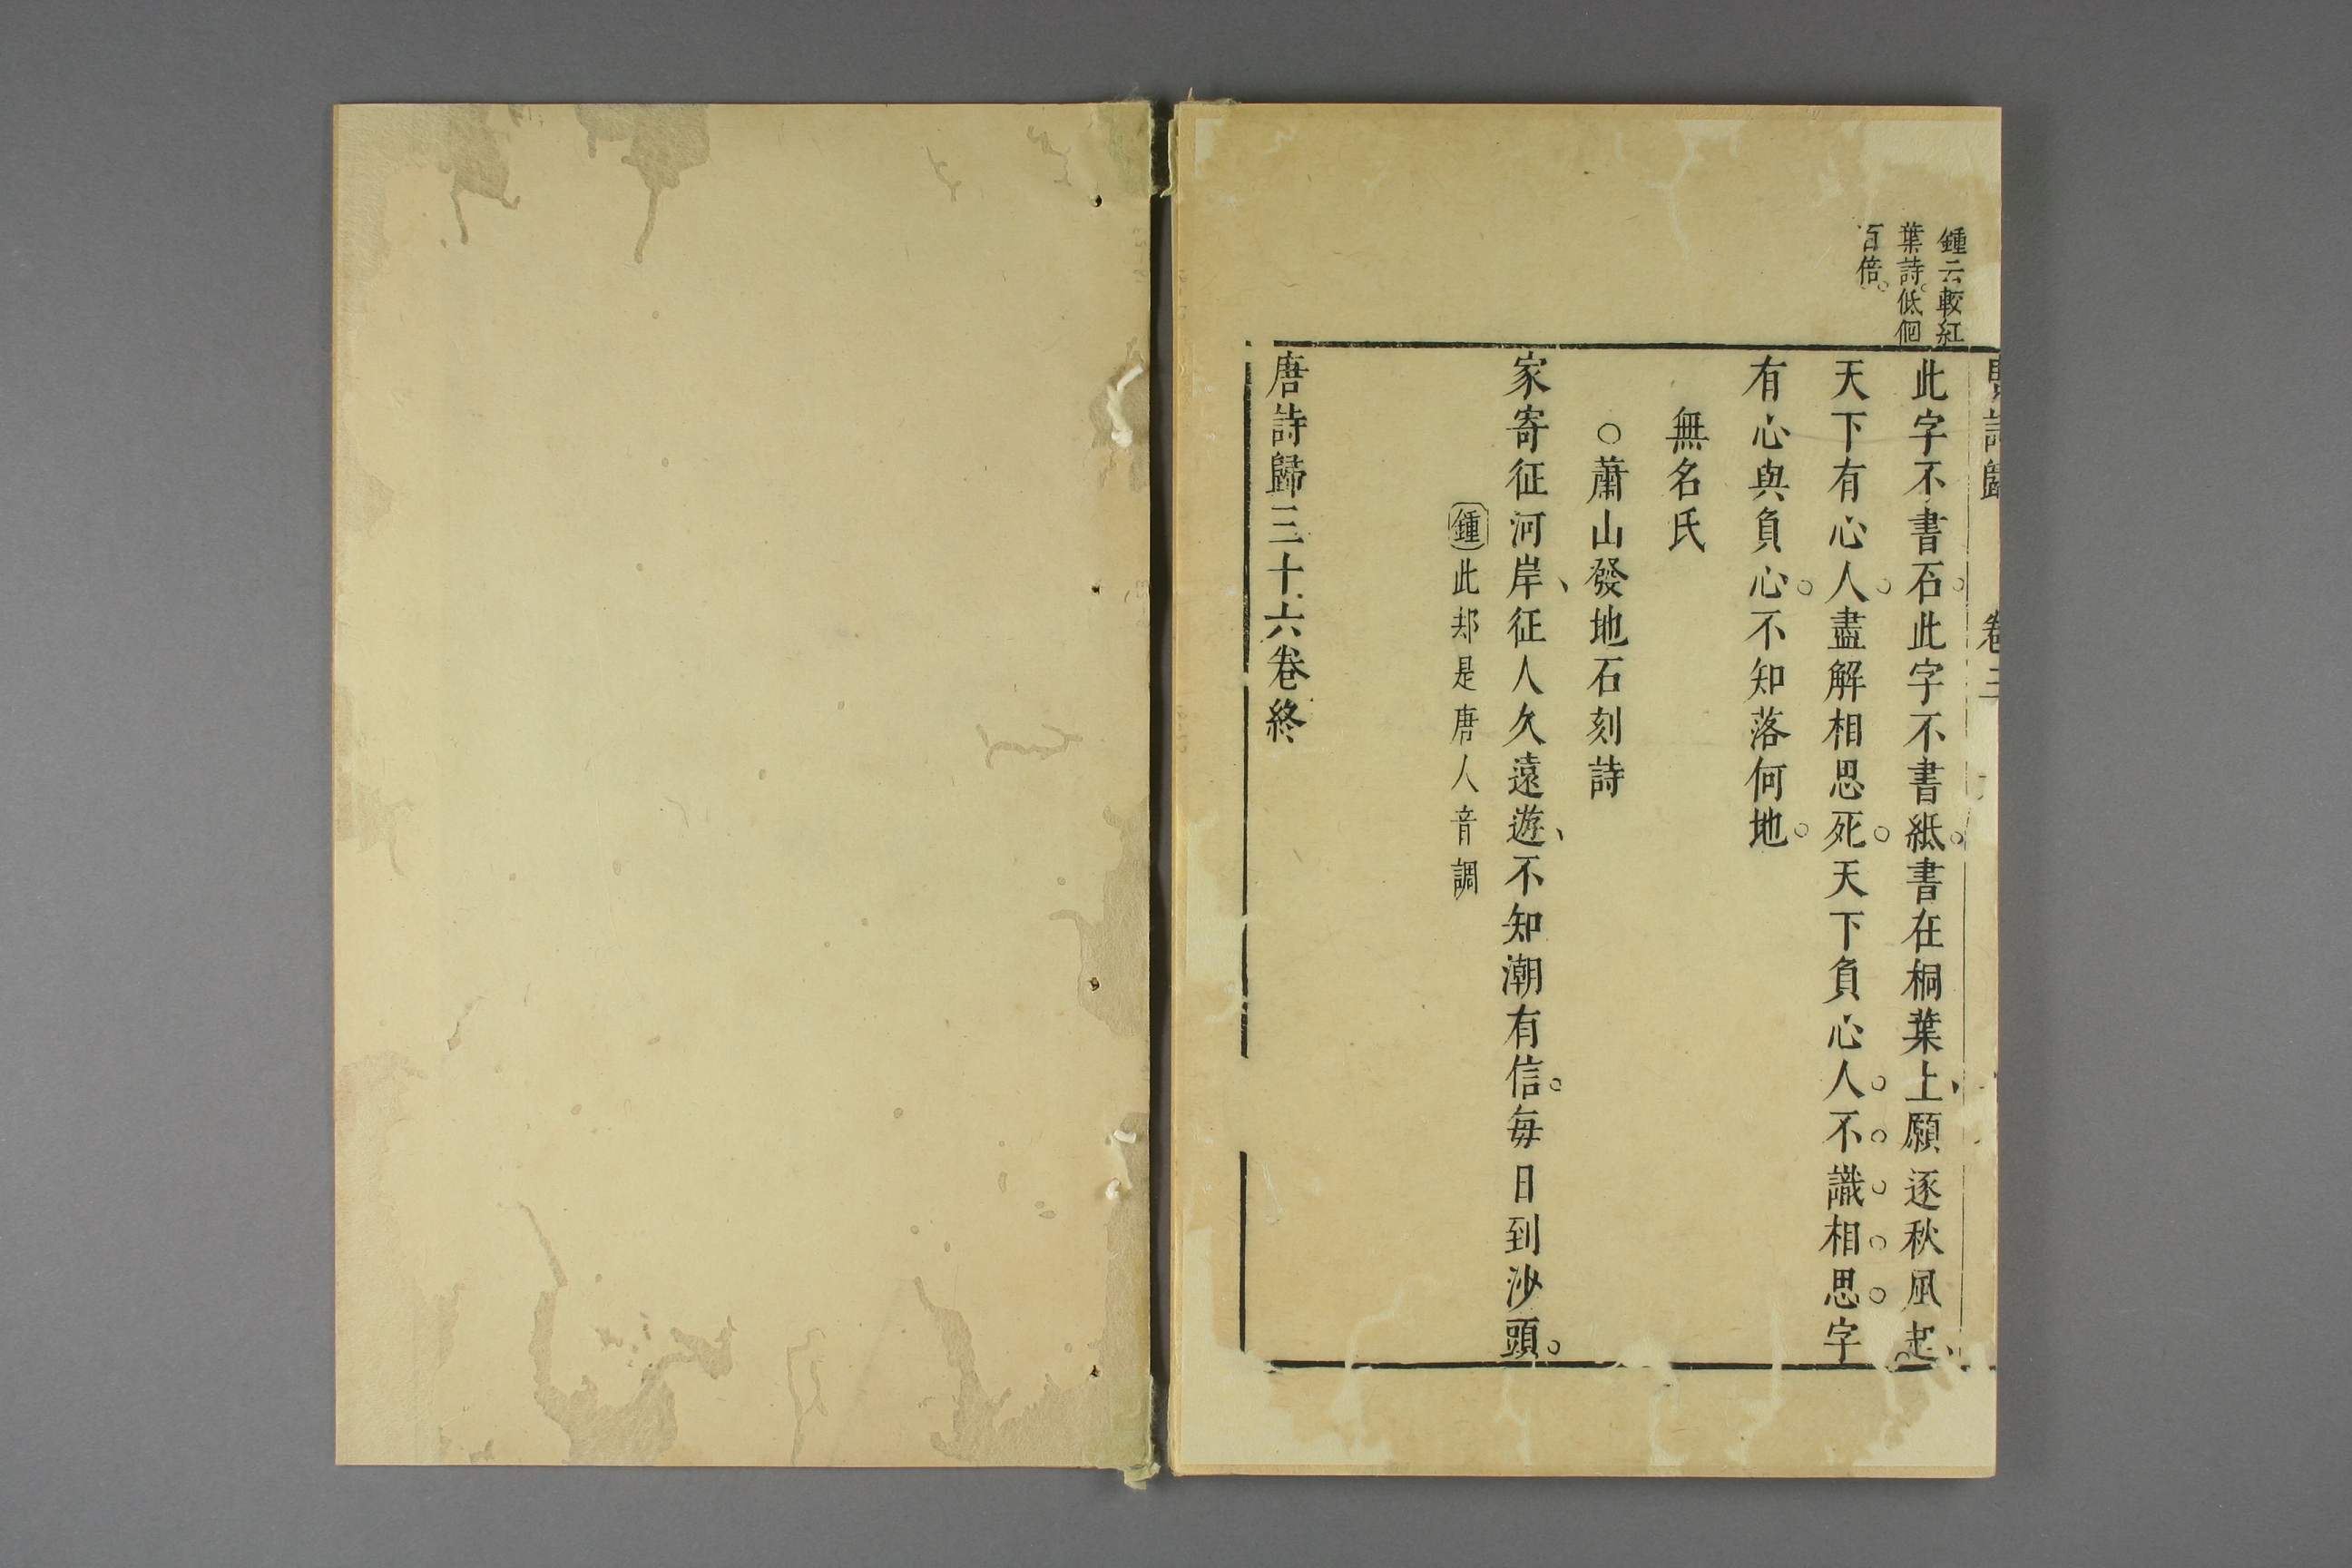 鍾云較紅
葉詩低佪
百倍
詩歸 卷三
此字不書石此字不書紙書在桐葉上願逐秋風起
天下有心人盡解相思死天下負心人不識相思字
有心與負心不知落何地
無名氏
○蕭山發地石刻詩
家寄征河岸征人久遠遊不知潮有信每日到沙頭
鍾此却是唐人音調
唐詩歸三十六卷終